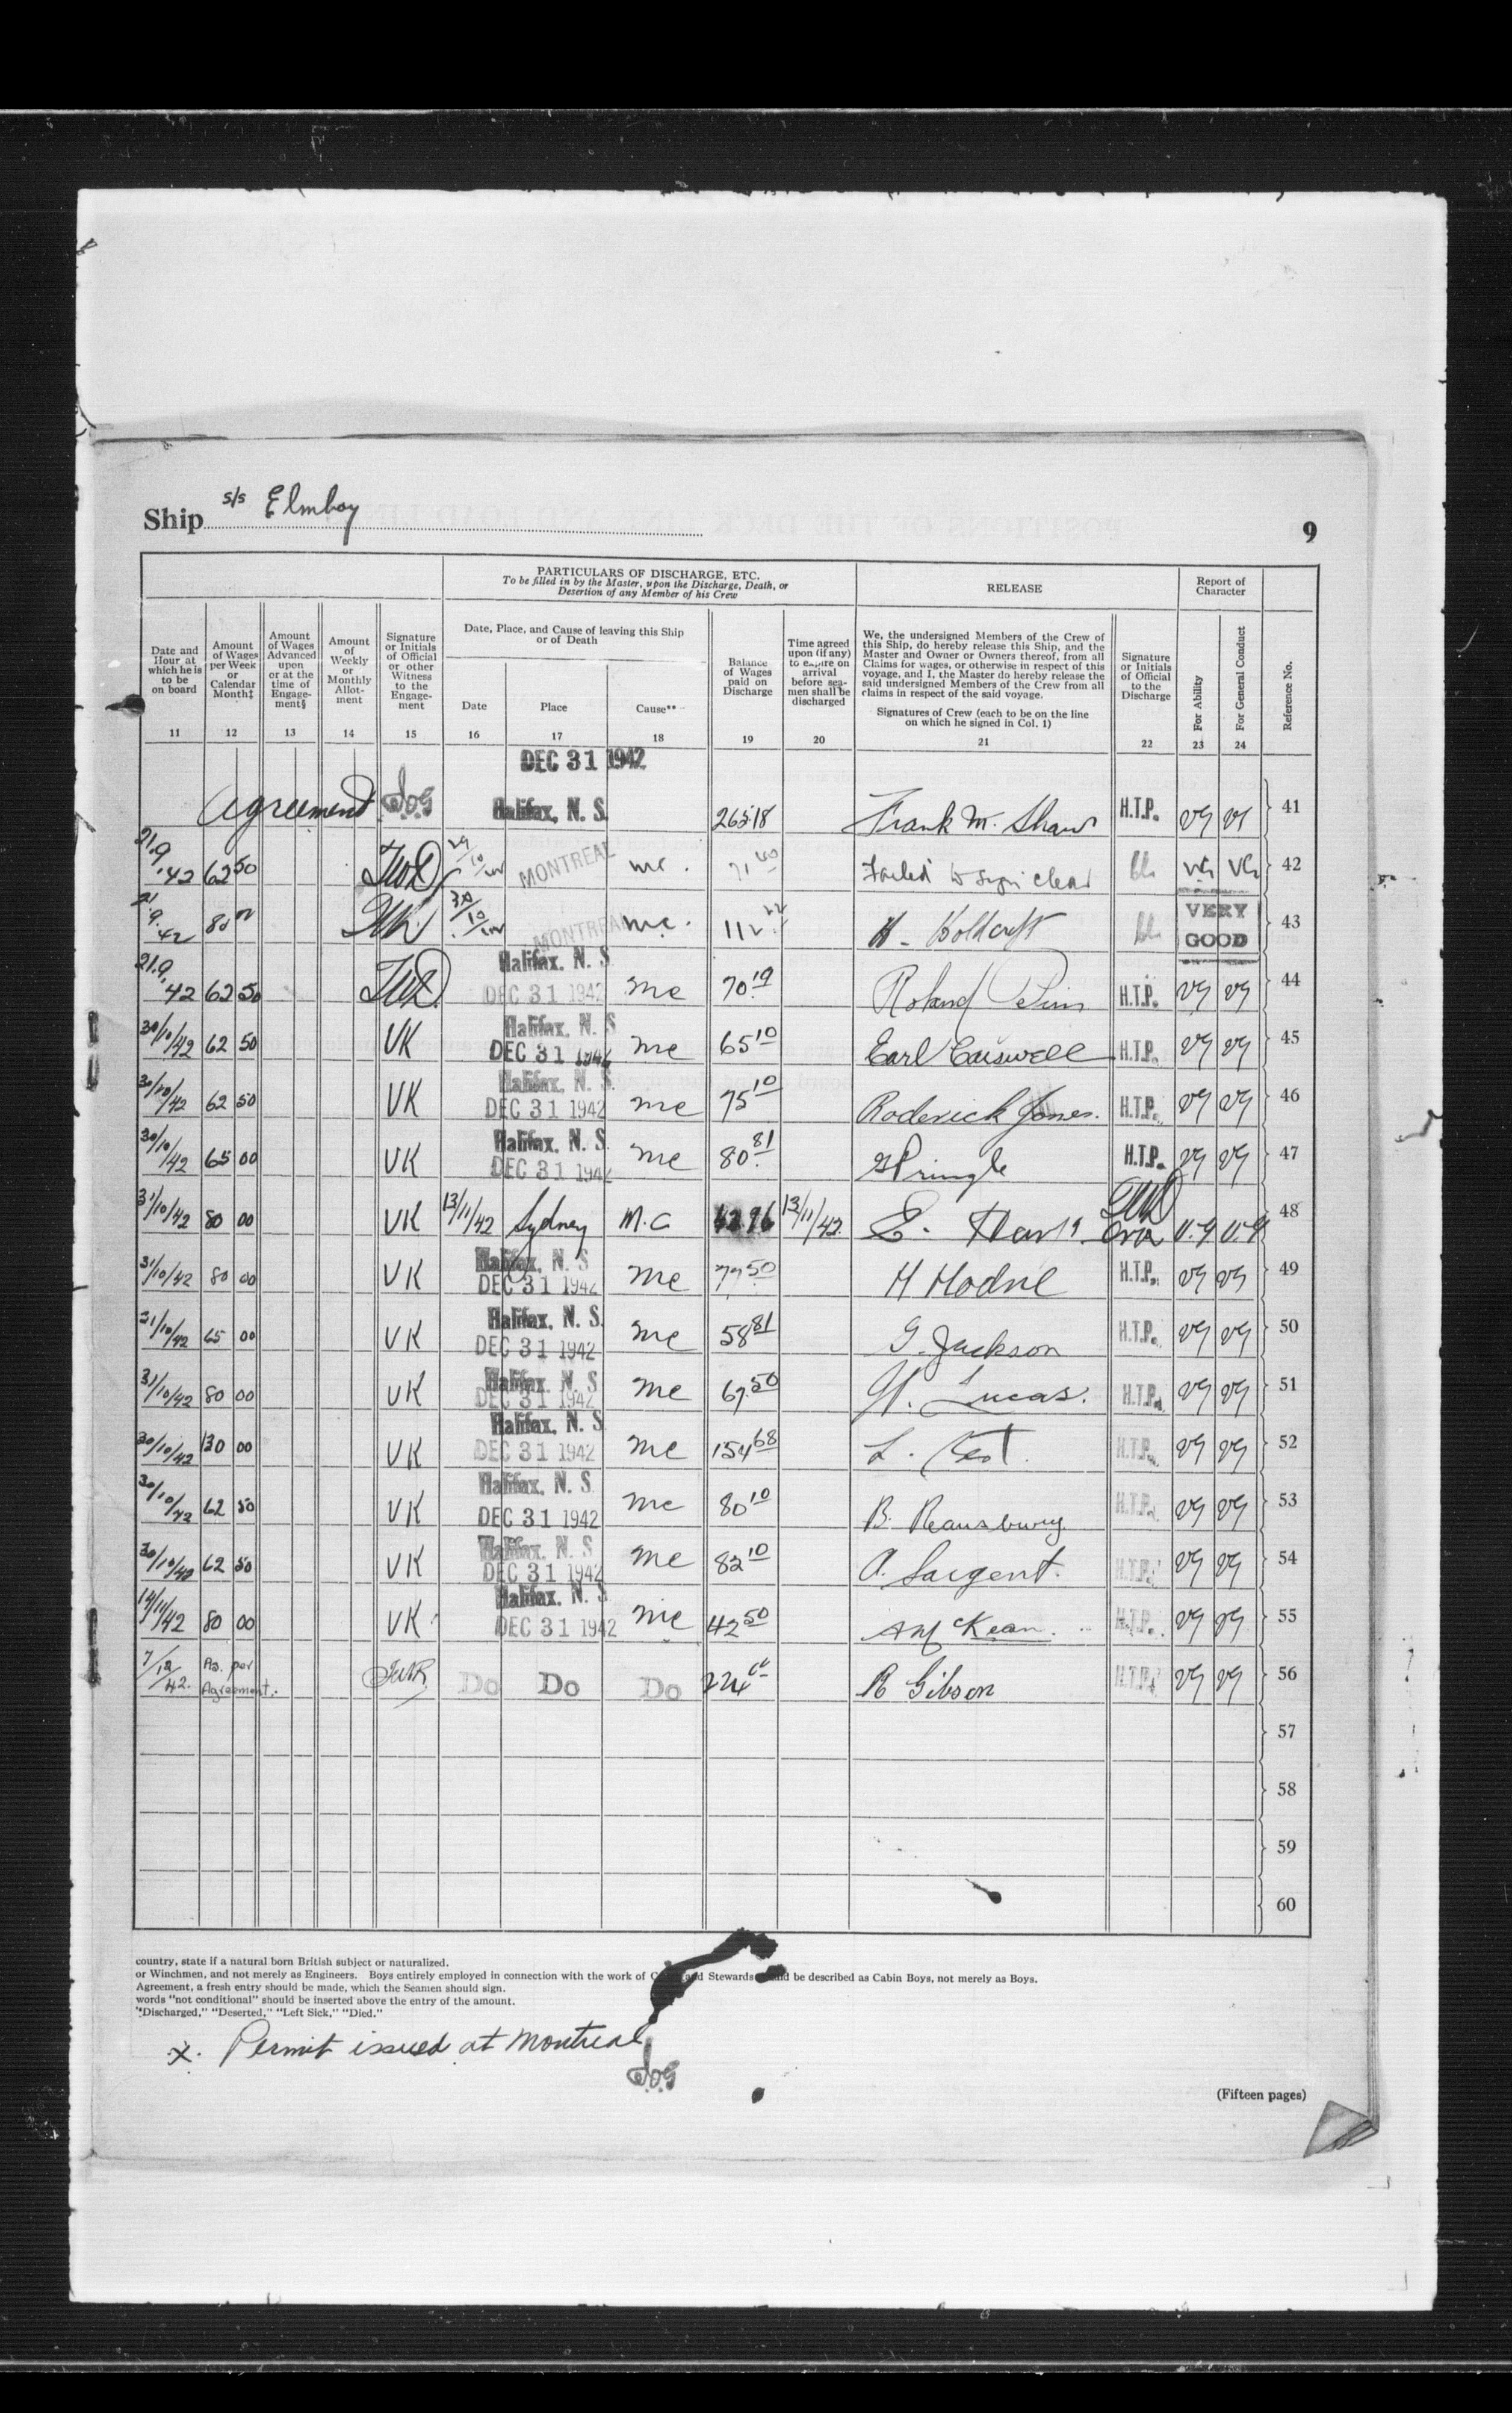 Ship s/s Elmbay
9
PARTICULARS OF DISCHARGE, ETC.
To be filled in by the Master, upon the Discharge, Death, or
Desertion of any Member of his Crew
RELEASE
Report of
Character
Date and
Hour at
which he is
to be
on board
11
Amount
of Wages
per Week
or
Calendar
Month‡
12
Amount
of Wages
Advanced
upon
or at the
time of
Engage-
ment§
13
Amount
of
Weekly
or
Monthly
Allot-
ment
14
Signature
or Initials
of Official
or other
Witness
to the
Engage-
ment
15
Date, Place, and Cause of leaving this Ship
or of Death
Date
16
Place
17
Cause**
18
Balance
of Wages
paid on
Discharge
19
Time agreed
upon (if any)
to expire on
arrival
before sea-
men shall be
discharged
20
We, the undersigned Members of the Crew of
this Ship, do hereby release this Ship, and the
Master and Owner or Owners thereof, from all
Claims for wages, or otherwise in respect of this
voyage, and I, the Master do hereby release the
said undersigned Members of the Crew from all
claims in respect of the said voyage.
Signatures of Crew (each to be on the line
on which he signed in Col. 1)
21
Signature
or Initials
of Official
to the
Discharge
22
For Ability
23
For General Conduct
24
Reference No.
DEC 31 1942
agreement Halifax, N. S. 265.18 Frank M. Shaw H.T.P. VG 41
21.9.42 62 50 29/10/42 MONTREAL mc. Failed to sign clear VG VG 42
21.9.42 80 30/10/42 MONTREAL mc. H. VERY GOOD 43
21.9.42 62 50 Halifax, N. S. DEC 31 1942 mc 70 19 Roland H.T.P. VG VG 44
30/10/42 62 50 VK Halifax, N. S. DEC 31 1942 mc 65 10 Earl Caiswell H.T.P. VG VG 45
30/10/42 62 50 VK Halifax, N. S. DEC 31 1942 mc 75 10 Roderick Jones. H.T.P. VG VG 46
30/10/42 65 00 VK Halifax, N. S. DEC 31 1942 mc 80 81 G Pringle H.T.P. VG VG 47
31/10/42 80 00 VK 13/11/42 Sydney M.C 13/11/42. E. V.G V.G 48
31/10/42 80 00 VK Halifax, N. S. DEC 31 1942 mc 77 50 H H.T.P. VG VG 49
31/10/42 65 00 VK Halifax, N. S. DEC 31 1942 mc 58 81 G. Jackson H.T.P. VG VG 50
31/10/42 80 00 VK Halifax, N. S. DEC 31 1942 mc 67 50 Lucas. H.T.P. VG VG 51
30/10/42 130 00 VK Halifax, N. S. DEC 31 1942 mc 154 68 L. H.T.P. VG VG 52
30/10/42 62 50 VK Halifax, N. S. DEC 31 1942 mc 80 10 B. H.T.P. VG VG 53
30/10/42 62 50 VK Halifax, N. S. DEC 31 1942 mc 82 10 A. Sargent. H.T.P. VG VG 54
14/11/42 80 00 VK Halifax, N. S. DEC 31 1942 mc 42 50 McKean. H.T.P. VG VG 55
7/12/42. As per Agreement. Do Do Do R Gibson H.T.P. VG VG 56
57
58
59
60
country, state if a natural born British subject or naturalized.
or Winchmen, and not merely as Engineers. Boys entirely employed in connection with the work of Stewards be described as Cabin Boys, not merely as Boys.
Agreement, a fresh entry should be made, which the Seamen should sign.
words "not conditional" should be inserted above the entry of the amount.
"Discharged," "Deserted," "Left Sick," "Died."
x. Permit issued at Montreal
(Fifteen pages)